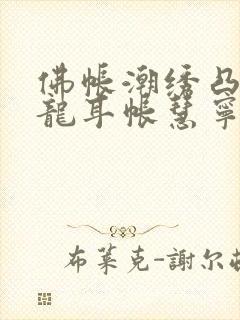 佛帳潮绣凸
龍耳帳慧寧
布萊克-謝尔